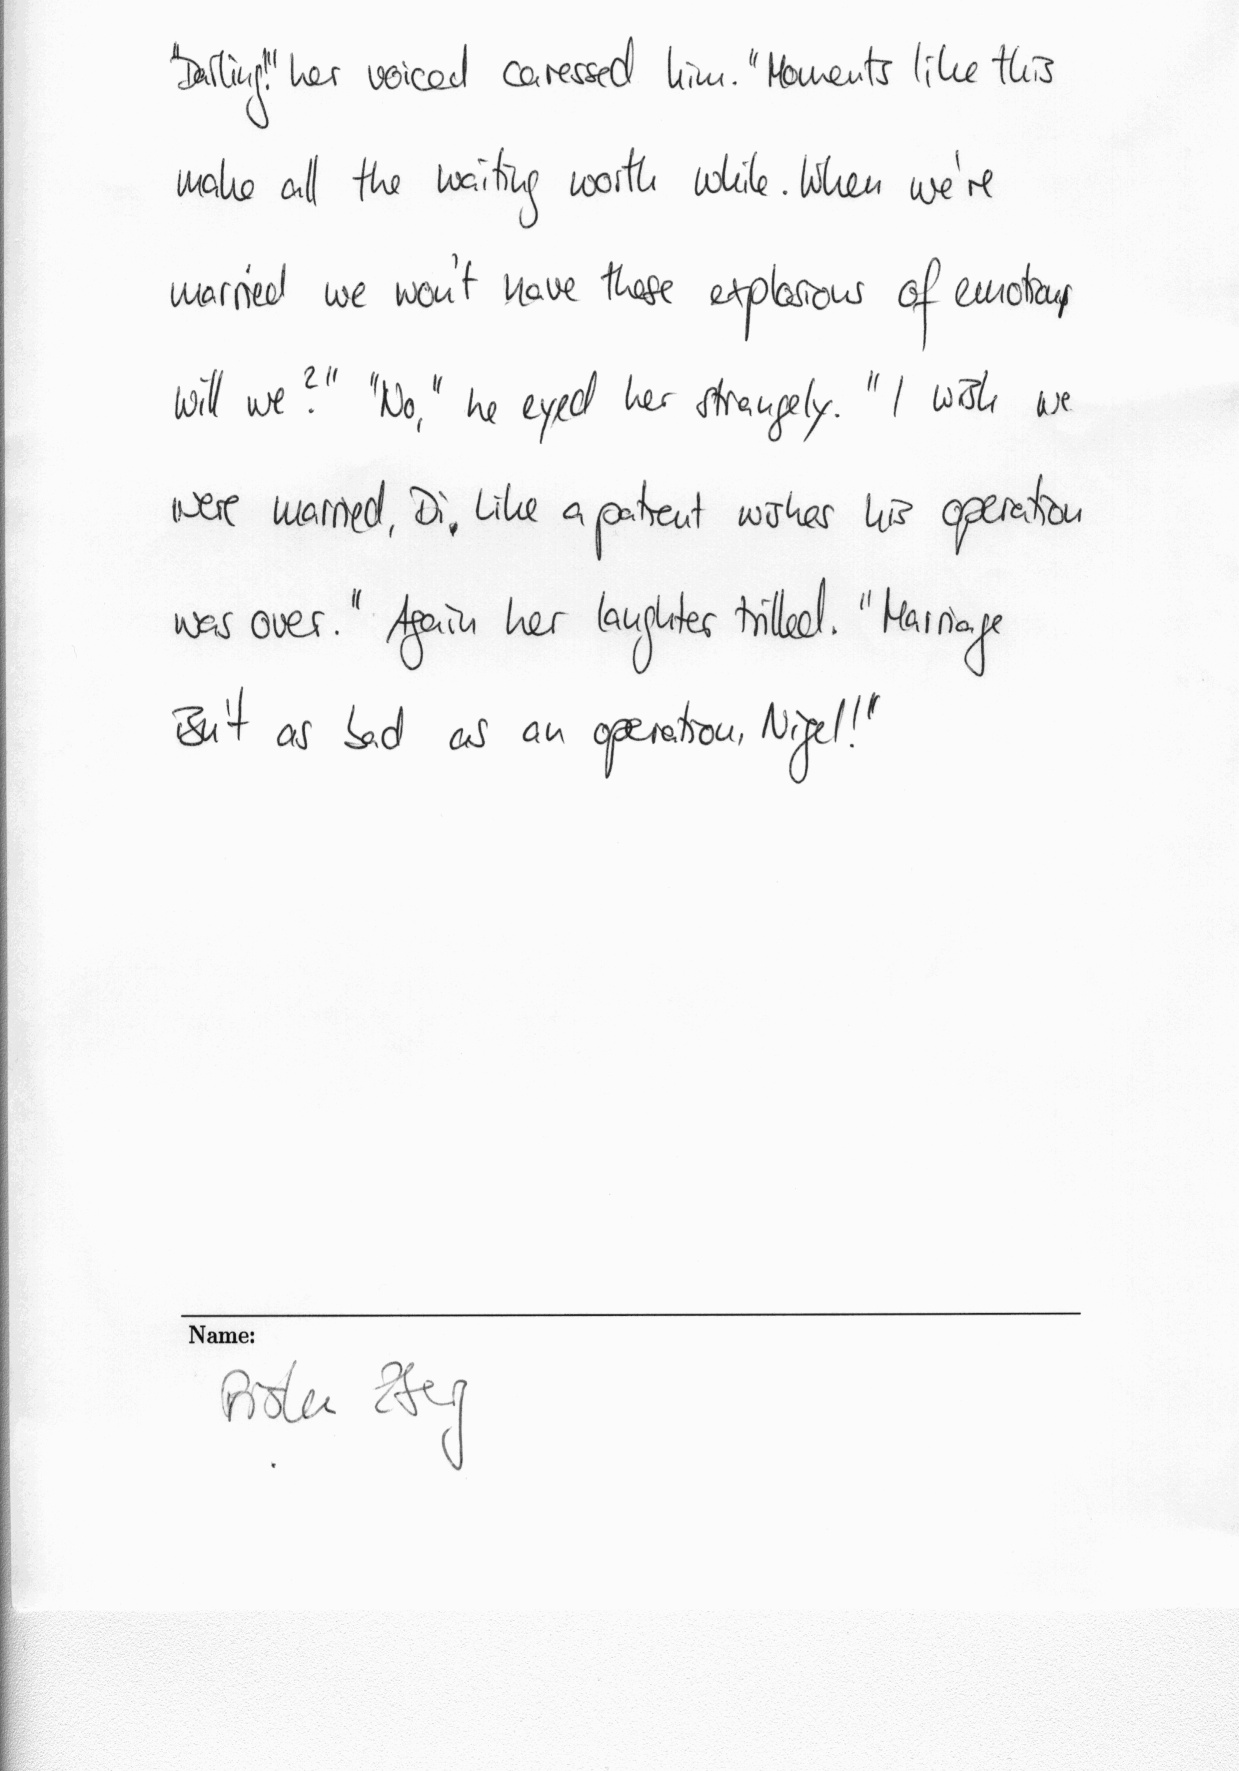 "Darling!" her voiced caressed him. "Moments like this
make all the waiting worth while. When we're
married we won't have these explosions of emotions
will we?" "No," he eyed her strangely. "I wish we
were married, Di. Like a patient wishes his operation
was over." Again her laughter trilled. "Marriage
isn't as bad as an operation, Nigel!"
Name: